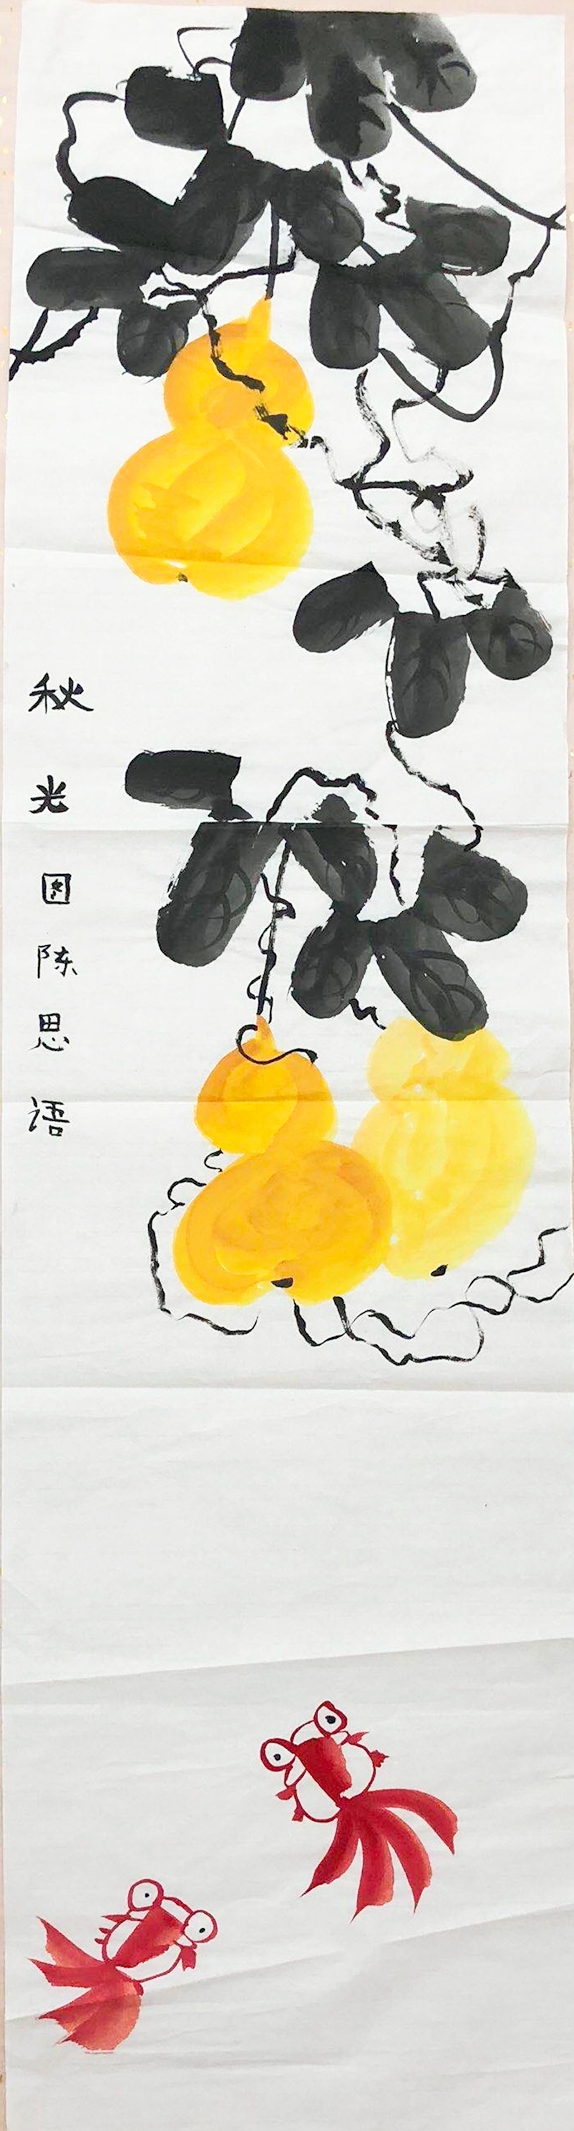 秋光図陈思语